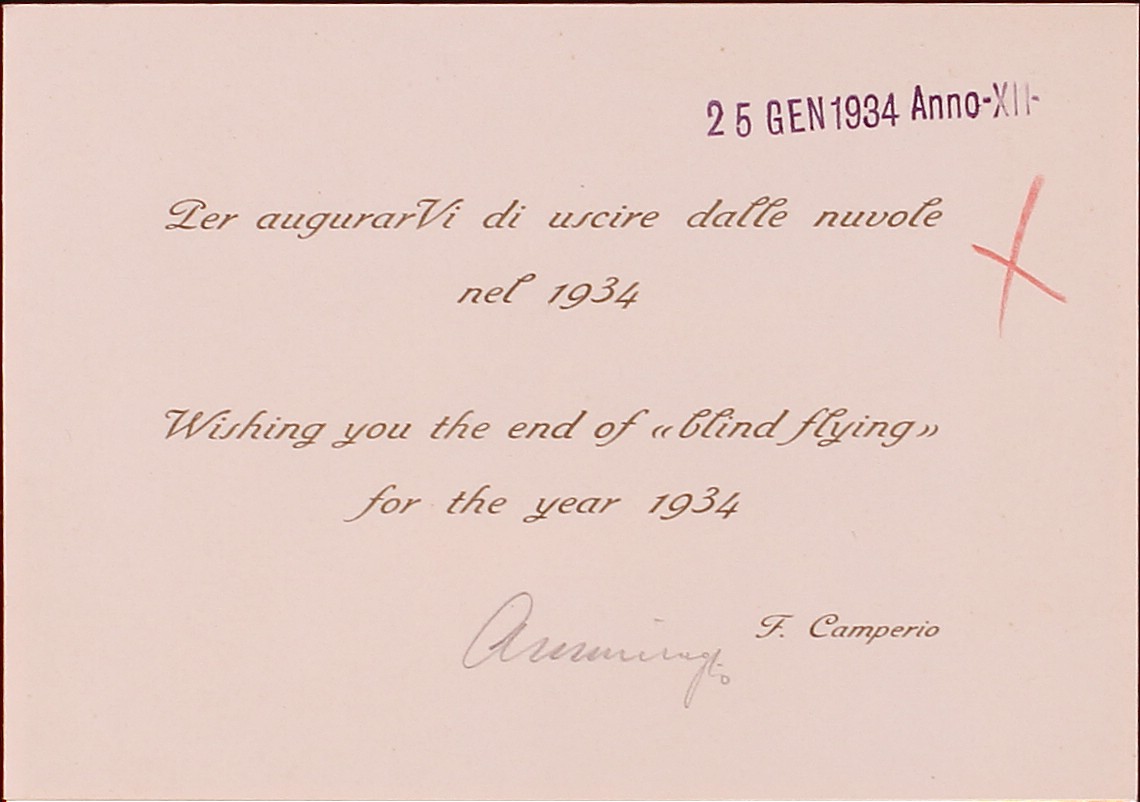 25 GEN 1934 Anno-XII-
Per augurarVi di uscire dalle nuvole
nel 1934
Wishing you the end of «blind flying»
for the year 1934
F. Camperio